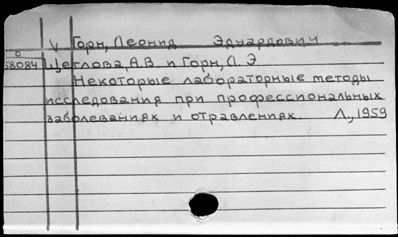 V Горн, Леонид Эдуардович
58084 Щеглова, А.В. и Горн, Л. Э
Некоторые лабораторные методы
исследования при профессиональных
заболеваниях и отравлениях. Л., 1959